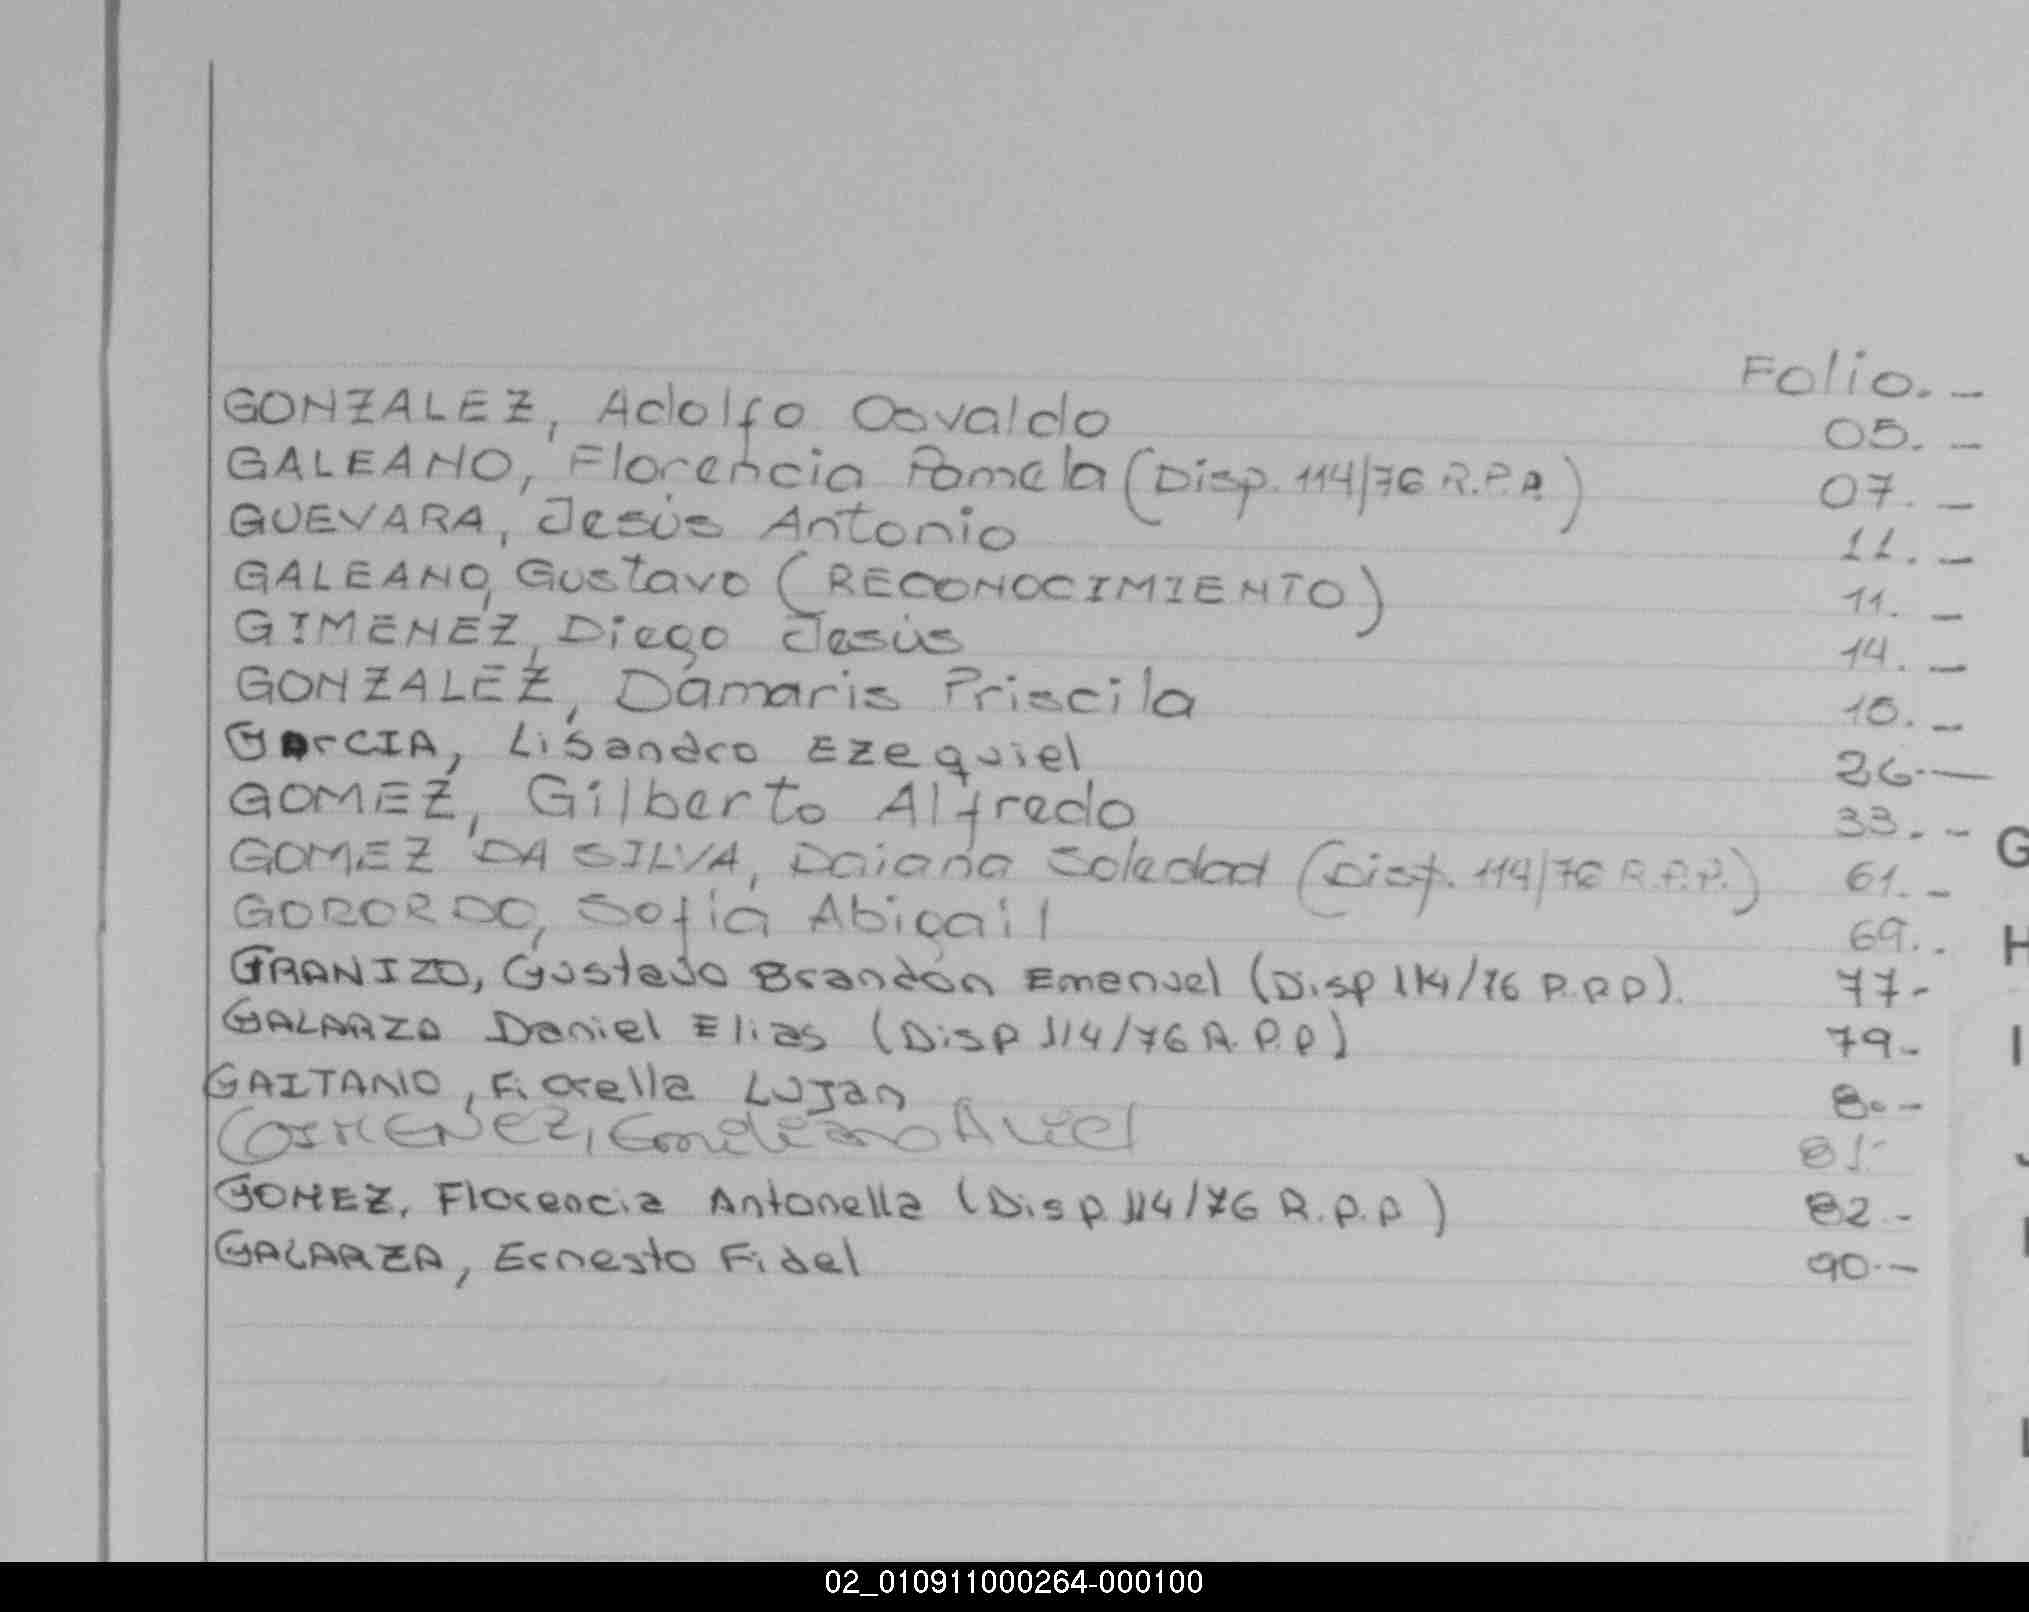 Folio. _
GONZALEZ, Adolfo Osvaldo 05. _
GALEANO, Florencia Pamela (Disp. 114/76 R.P.P.) 07. _
GUEVARA, Jesús Antonio 11. _
GALEANO, Gustavo (RECONOCIMIENTO) 11. _
GIMENEZ, Diego Jesús 14. _
GONZALEZ, Dámaris Priscila 10. _
GarCIA, Lisandro Ezequiel 26.—
GOMEZ, Gilberto Alfredo 33. -
GOMEZ DA SILVA, Daiana Soledad (Disp. 114/76 R.P.P.) 61. -
GORORDO, Sofía Abigail 69..
GRANIZO, Gustavo Brandón Emanuel (Disp 114/76 R.P.P). 77-
GALARZA Daniel Elias (Disp 114/76 R.P.P) 79-
GAITANO, Fiorella Lujan 80-
81-
GOMEZ, Florencia Antonella (Disp 114/76 R.P.P) 82.-
GALARZA, Ernesto Fidel 90.—
G
H
I
J
L
02_010911000264-000100